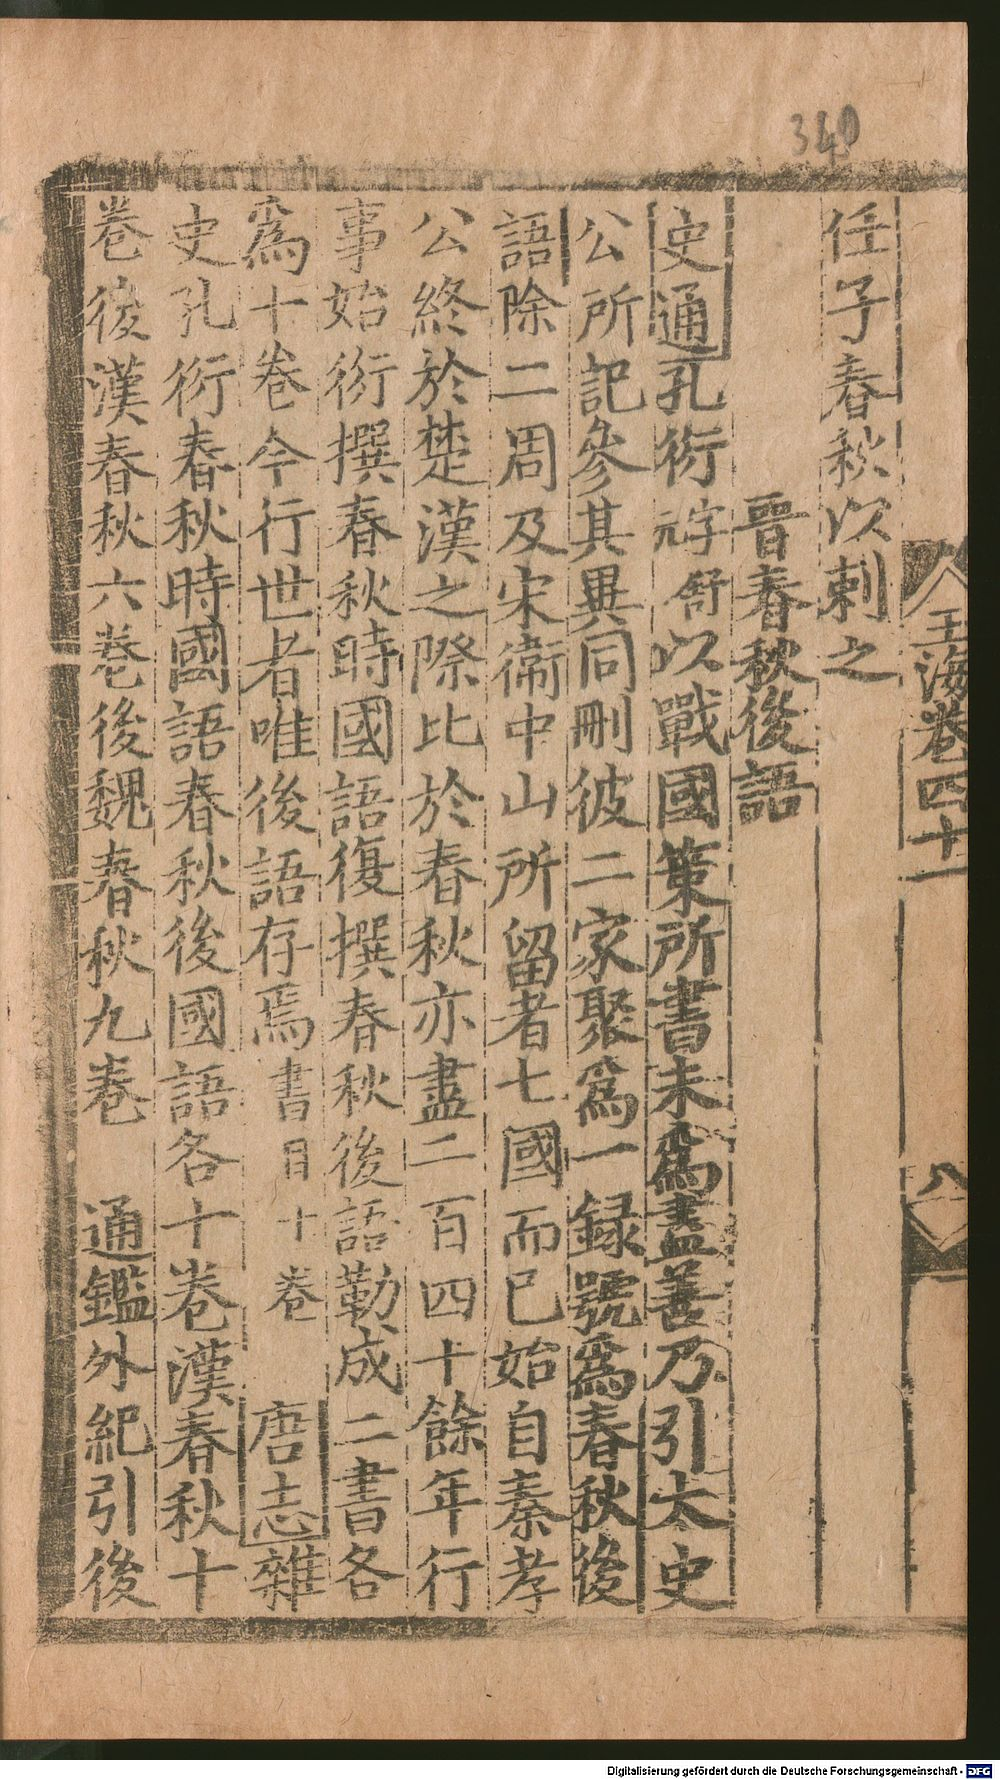 340
王海卷四十
八
任子春秋以刺之
晉春秋後語
史通孔衍字元舒以戰國策所書未爲盡善乃引太史
公所記參其異同刪彼二家聚爲一録號爲春秋後
語除二周及宋衞中山所留者七國而已始自秦孝
公終於楚漢之際比於春秋亦盡二百四十餘年行
事始衍撰春秋時國語復撰春秋後語勒成二書各
爲十卷今行世者唯後語存焉書目十卷 唐志雜
史孔衍春秋時國語春秋後國語各十卷漢春秋十
卷後漢春秋六卷後魏春秋九卷 通鑑外紀引後
Digitalisierung gefördert durch die Deutsche Forschungsgemeinschaft - DFG